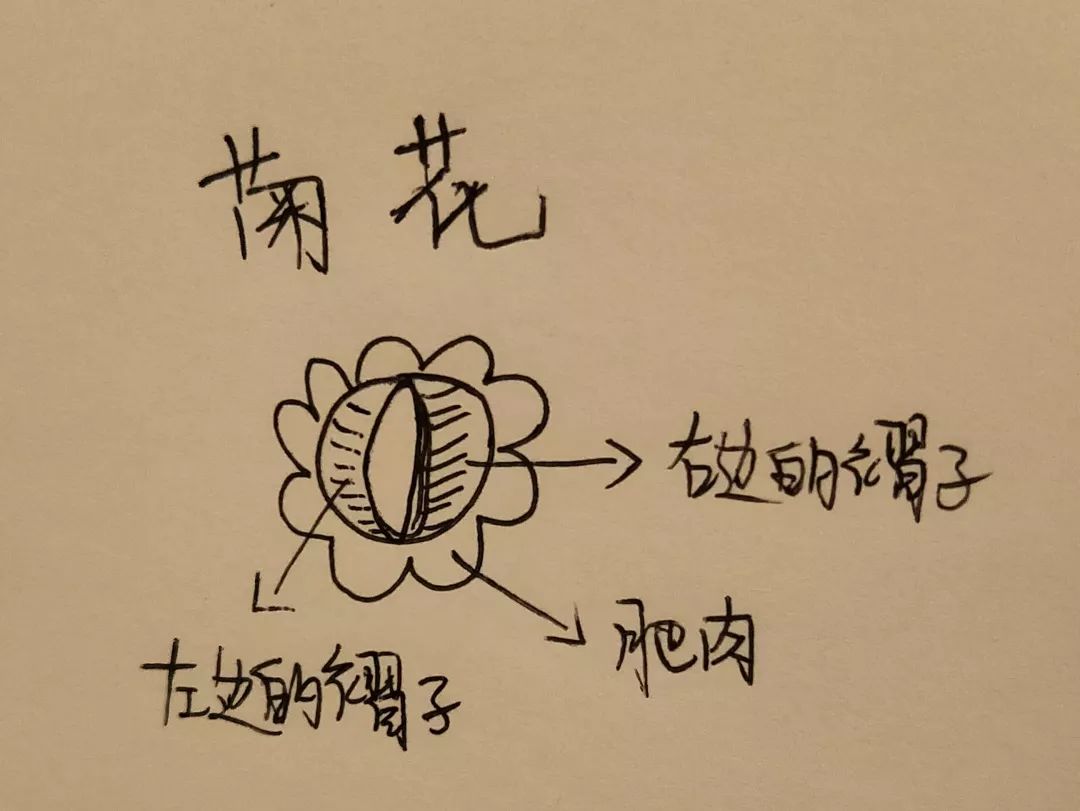 菊花
右边的褶子
肥肉
左边的褶子